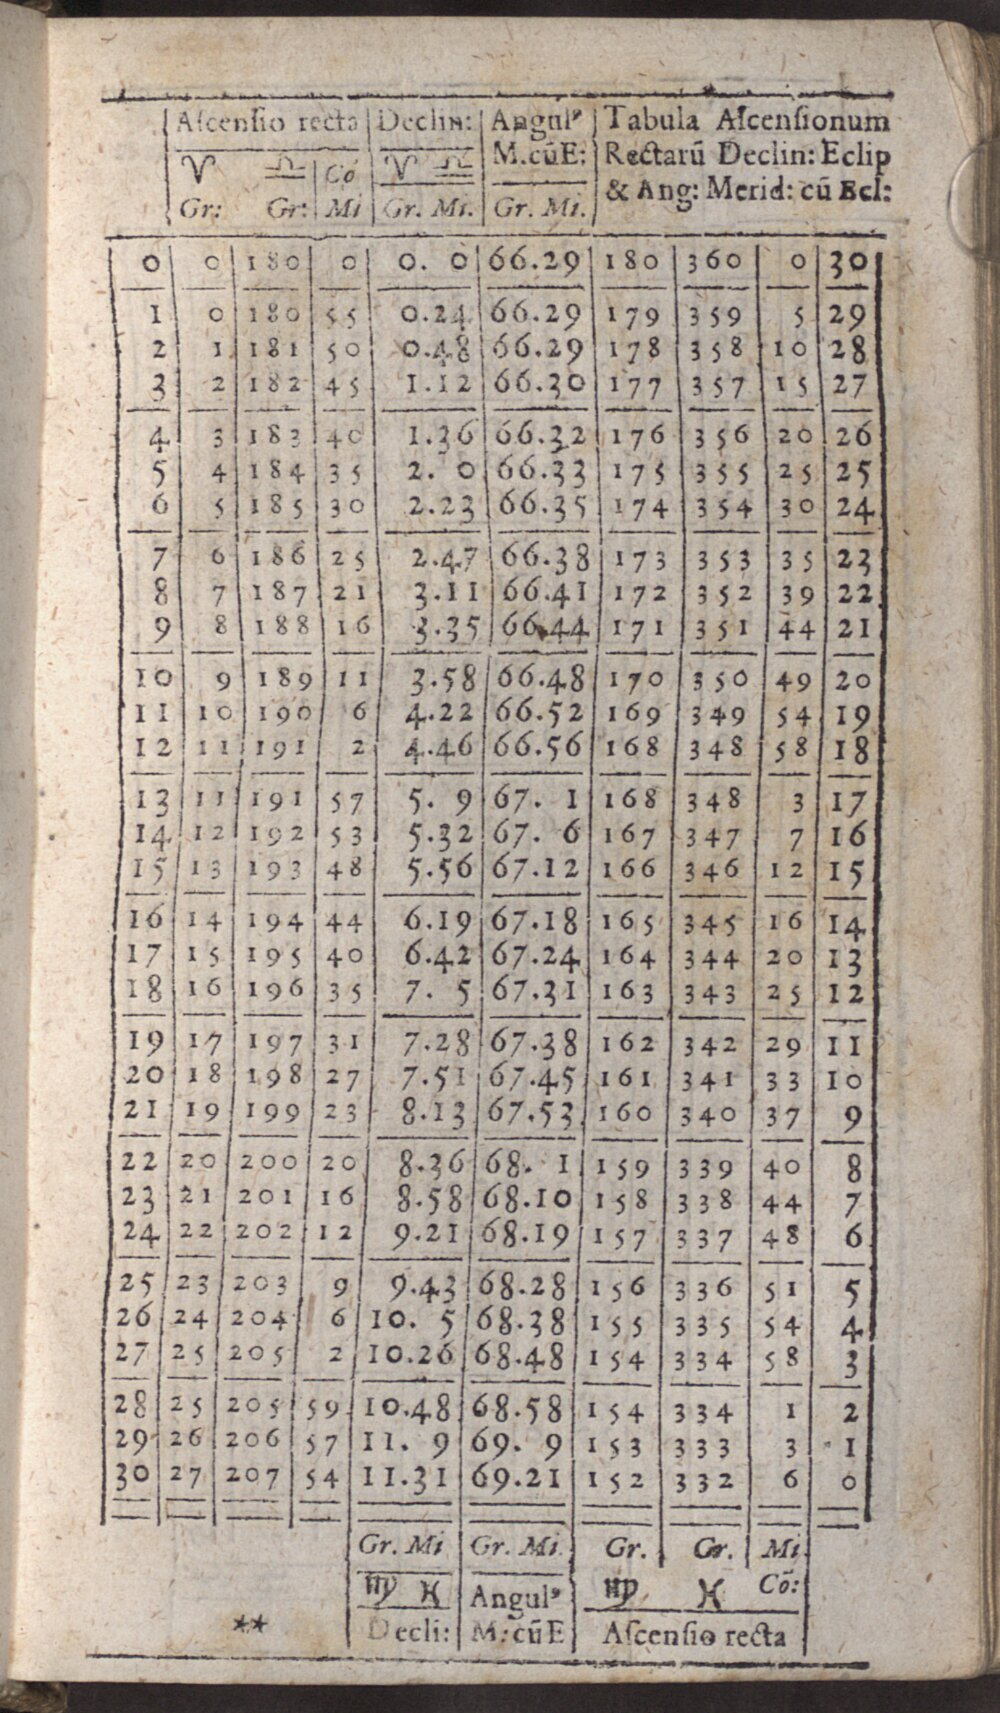 Aſcenſio recta Declin: Angulꝰ Tabula Aſcenſionum
M.cũE: Rectarũ Declin: Eclip
♈ ♎ Cõ ♈ ♎ & Ang: Merid: cũ Ecl:
Gr: Gr: Mi Gr. Mi. Gr. Mi.
0 0 180 0 0. 0 66.29 180 360 0 30
1 0 180 55 0.24 66.29 179 359 5 29
2 1 181 50 0.48 66.29 178 358 10 28
3 2 182 45 1.12 66.30 177 357 15 27
4 3 183 40 1.36 66.32 176 356 20 26
5 4 184 35 2. 0 66.33 175 355 25 25
6 5 185 30 2.23 66.35 174 354 30 24
7 6 186 25 2.47 66.38 173 353 35 23
8 7 187 21 3.11 66.41 172 352 39 22
9 8 188 16 3.35 66.44 171 351 44 21
10 9 189 11 3.58 66.48 170 350 49 20
11 10 190 6 4.22 66.52 169 349 54 19
12 11 191 2 4.46 66.56 168 348 58 18
13 11 191 57 5. 9 67. 1 168 348 3 17
14 12 192 53 5.32 67. 6 167 347 7 16
15 13 193 48 5.56 67.12 166 346 12 15
16 14 194 44 6.19 67.18 165 345 16 14
17 15 195 40 6.42 67.24 164 344 20 13
18 16 196 35 7. 5 67.31 163 343 25 12
19 17 197 31 7.28 67.38 162 342 29 11
20 18 198 27 7.51 67.45 161 341 33 10
21 19 199 23 8.13 67.53 160 340 37 9
22 20 200 20 8.36 68. 1 159 339 40 8
23 21 201 16 8.58 68.10 158 338 44 7
24 22 202 12 9.21 68.19 157 337 48 6
25 23 203 9 9.43 68.28 156 336 51 5
26 24 204 6 10. 5 68.38 155 335 54 4
27 25 205 2 10.26 68.48 154 334 58 3
28 25 205 59 10.48 68.58 154 334 1 2
29 26 206 57 11. 9 69. 9 153 333 3 1
30 27 207 54 11.31 69.21 152 332 6 0
Gr. Mi Gr. Mi. Gr. Gr. Mi
♍ ♓ Angulꝰ ♍ ♓ Cõ:
** Decli: M:cũE Aſcenſio recta